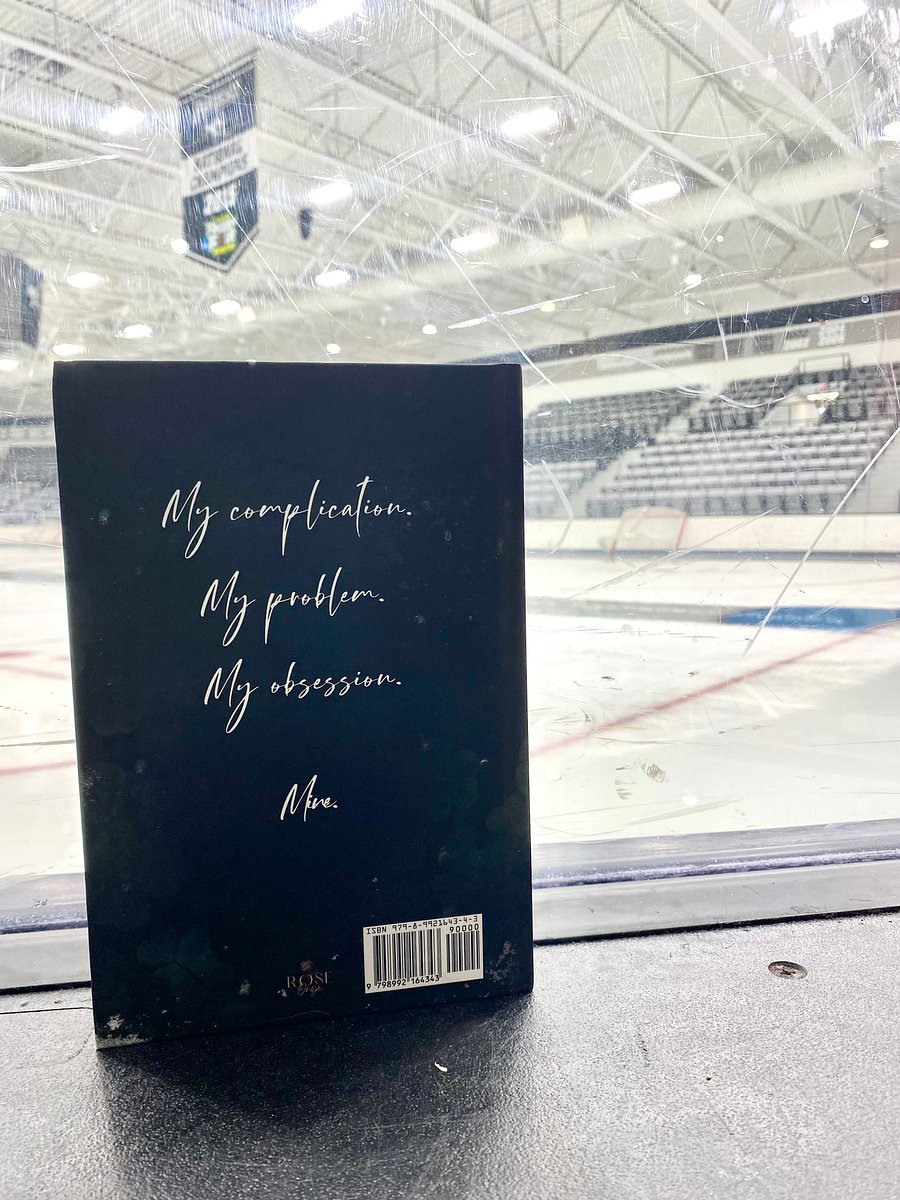 My complication.
My problem.
My obsession.
Mine.
ISBN 979-8-9921643-4-3
90000
9 798992 164343
ROSE